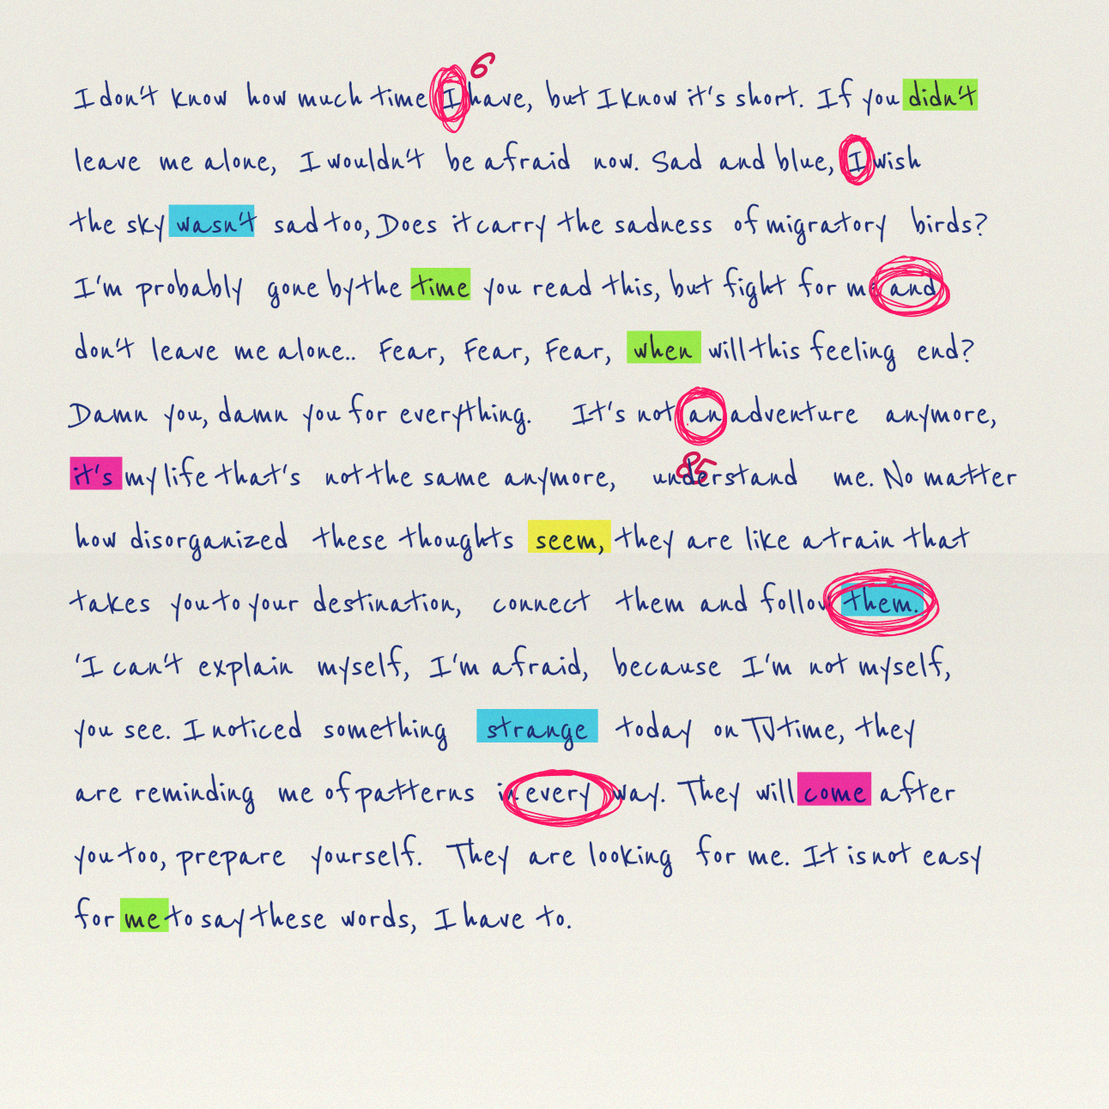 6
I don't know how much time I have, but I know it's short. If you didn't
leave me alone, I wouldn't be afraid now. Sad and blue, I wish
the sky wasn't sad too, Does it carry the sadness of migratory birds?
I'm probably gone by the time you read this, but fight for me and
don't leave me alone.. Fear, Fear, Fear, when will this feeling end?
Damn you, damn you for everything. It's not an adventure anymore,
85
it's my life that's not the same anymore, understand me. No matter
how disorganized these thoughts seem, they are like a train that
takes you to your destination, connect them and follow them.
'I can't explain myself, I'm afraid, because I'm not myself,
you see. I noticed something strange today on TJ time, they
are reminding me of patterns in every way. They will come after
you too, prepare yourself. They are looking for me. It is not easy
for me to say these words, I have to.